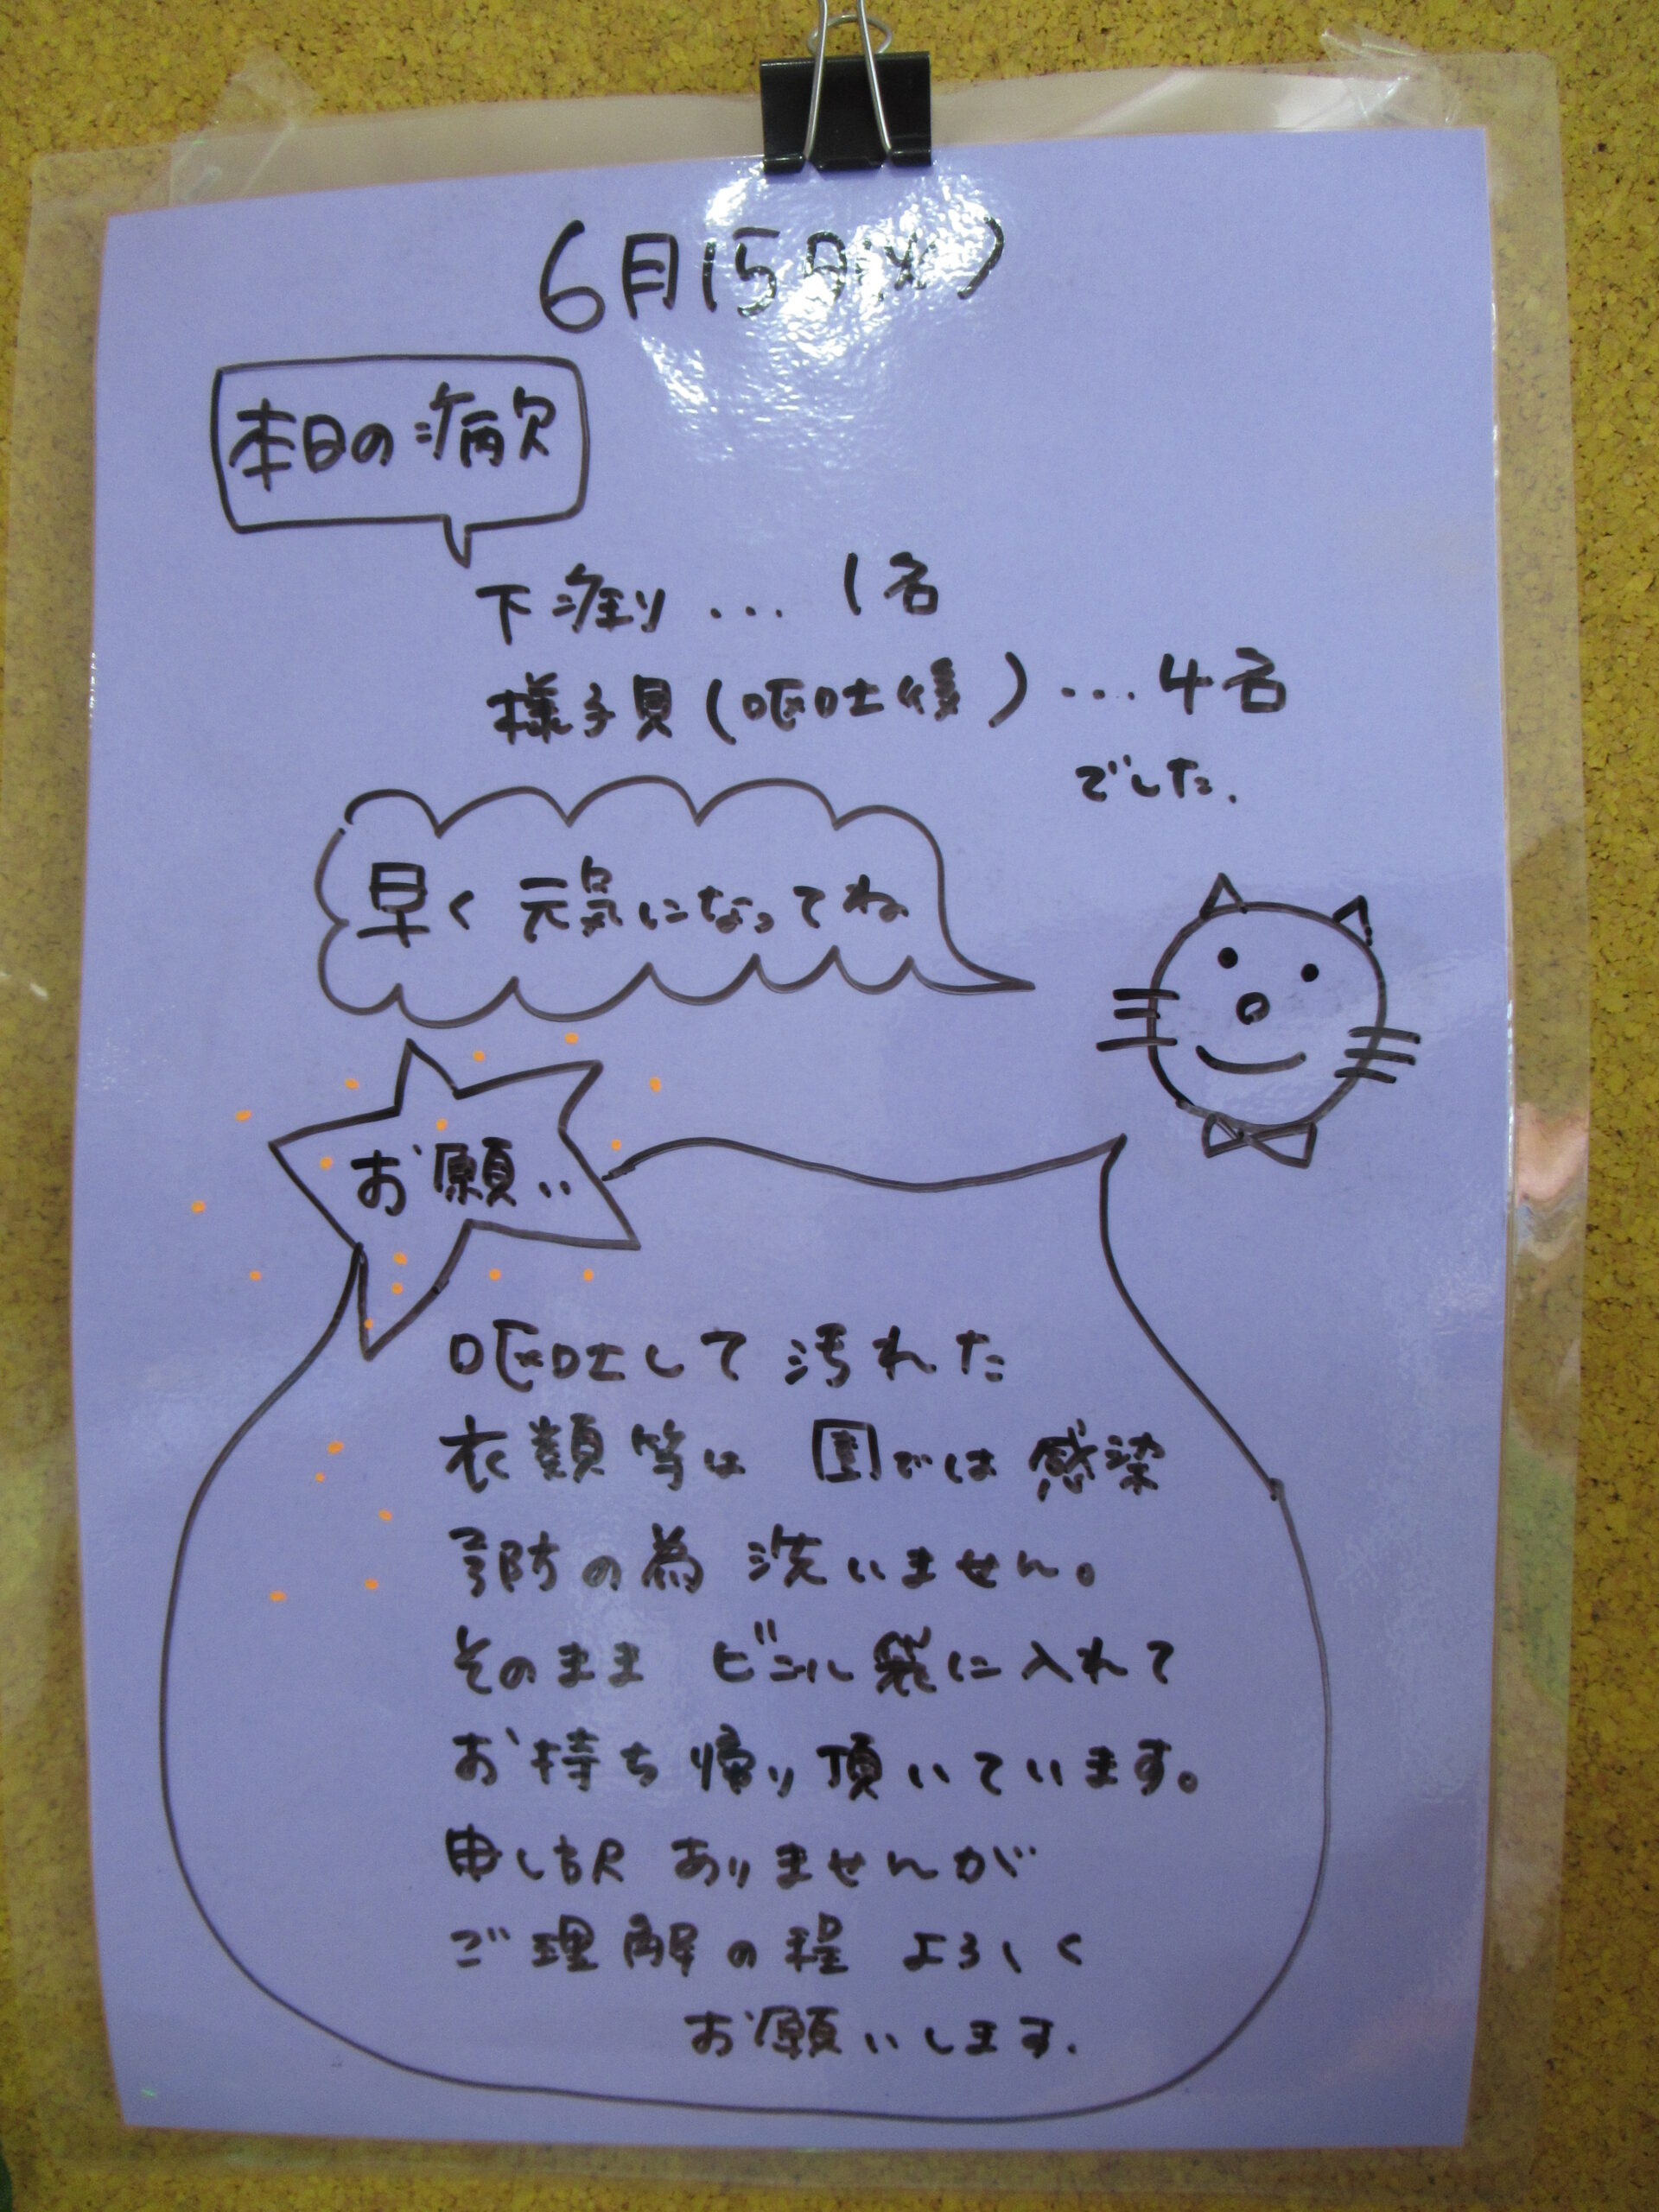 6月15日(火)
本日の病欠
下痢り ... 1名
様子見(嘔吐後) .... 4名
でした.
早く元気になってね
お願い
嘔吐して汚れた
衣類等は 園では感染
予防の為 洗いません。
そのまま ビニール袋に入れて
お持ち帰り頂いています。
申し訳ありませんが
ご理解の程 よろしく
お願いします.